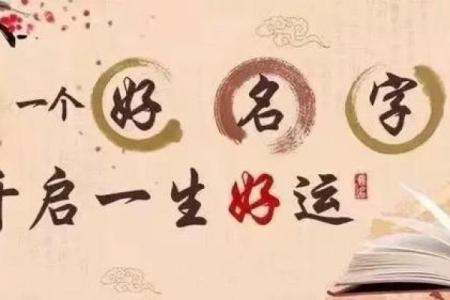 一个好名字
开启一生好运